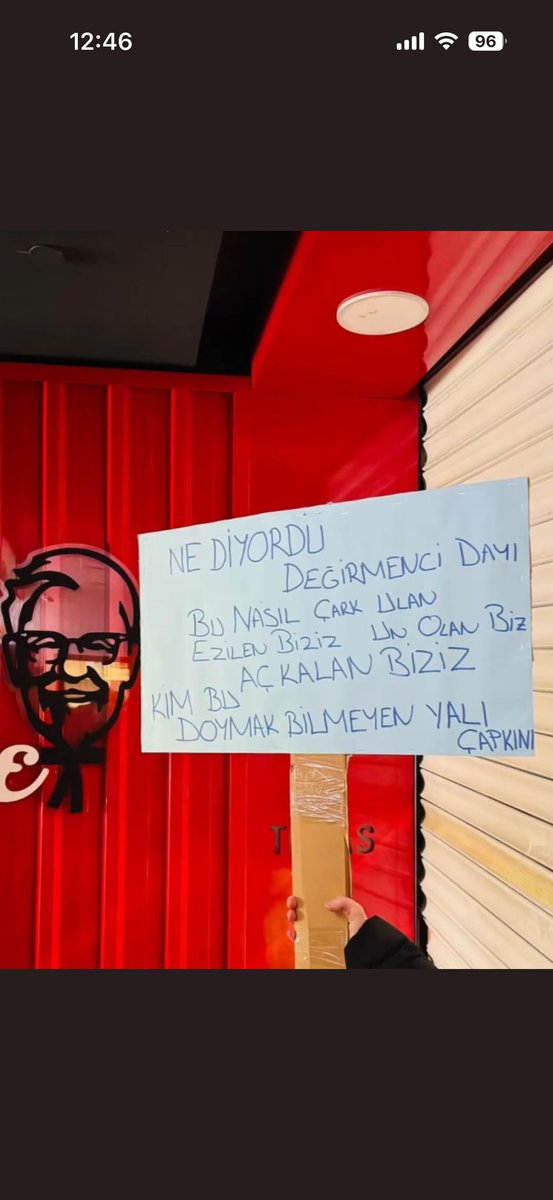 12:46
96
NE DİYORDU
DEĞİRMENCİ DAYI
BU NASIL ÇARK ULAN
EZİLEN BİZİZ UN OLAN BİZ
AÇ KALAN BİZİZ
KİM BU
DOYMAK BİLMEYEN YALI
ÇAPKINI